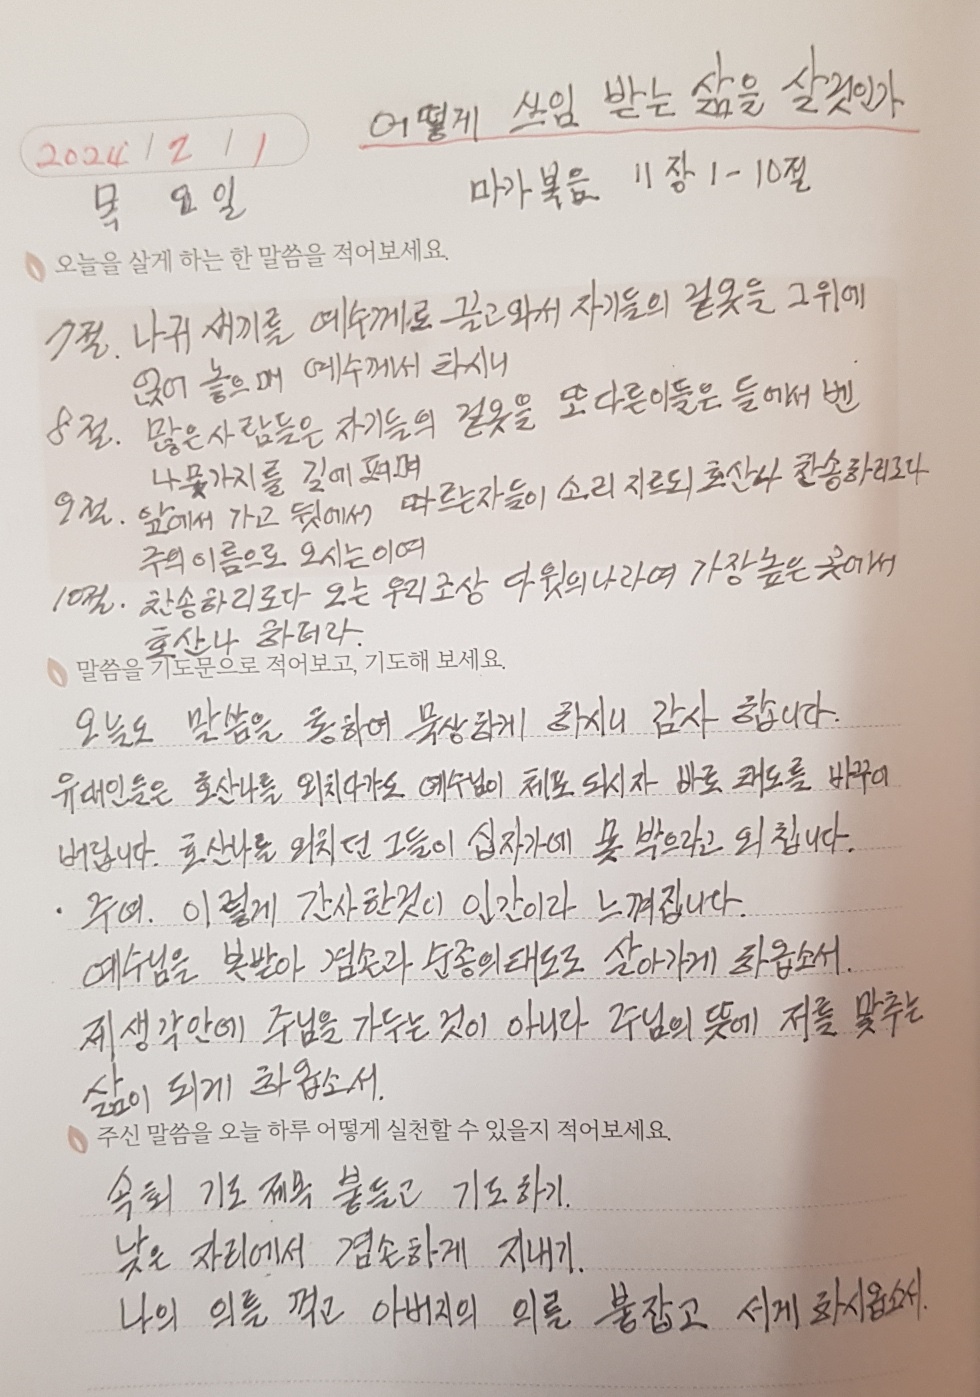 어떻게 쓰임 받는 삶을 살것인가
2024 / 2 / 1
목 요일
마가복음 11장 1-10절
오늘을 살게 하는 한 말씀을 적어보세요.
7절. 나귀 새끼를 예수께로 끌고와서 자기들의 겉옷을 그위에
얹어 놓으매 예수께서 타시니
8절. 많은사람들은 자기들의 겉옷을 또다른이들은 들에서 벤
나뭇가지를 길에 펴며
9절. 앞에서 가고 뒷에서 따르는자들이 소리 지르되 호산나 찬송하리로다
주의이름으로 오시는이여
10절. 찬송하리로다 오는 우리조상 다윗의나라여 가장높은 곳에서
호산나 하더라.
말씀을 기도문으로 적어보고, 기도해 보세요.
오늘도 말씀을 통하여 묵상하게 하시니 감사 합니다.
유대인들은 호산나를 외치다가도 예수님이 체포 되시자 바로 태도를 바꾸어
버립니다. 호산나를 외치던 그들이 십자가에 못 박으라고 외칩니다.
· 주여. 이렇게 간사한것이 인간이라 느껴집니다.
예수님을 본받아 겸손과 순종의태도로 살아가게 하옵소서.
제생각안에 주님을 가두는것이 아니라 주님의 뜻에 저를 맞추는
삶이 되게 하옵소서.
주신 말씀을 오늘 하루 어떻게 실천할 수 있을지 적어보세요.
속회 기도제목 붙들고 기도하기.
낮은 자리에서 겸손하게 지내기.
나의 의를 꺽고 아버지의 의를 붙잡고 서게하시옵소서.